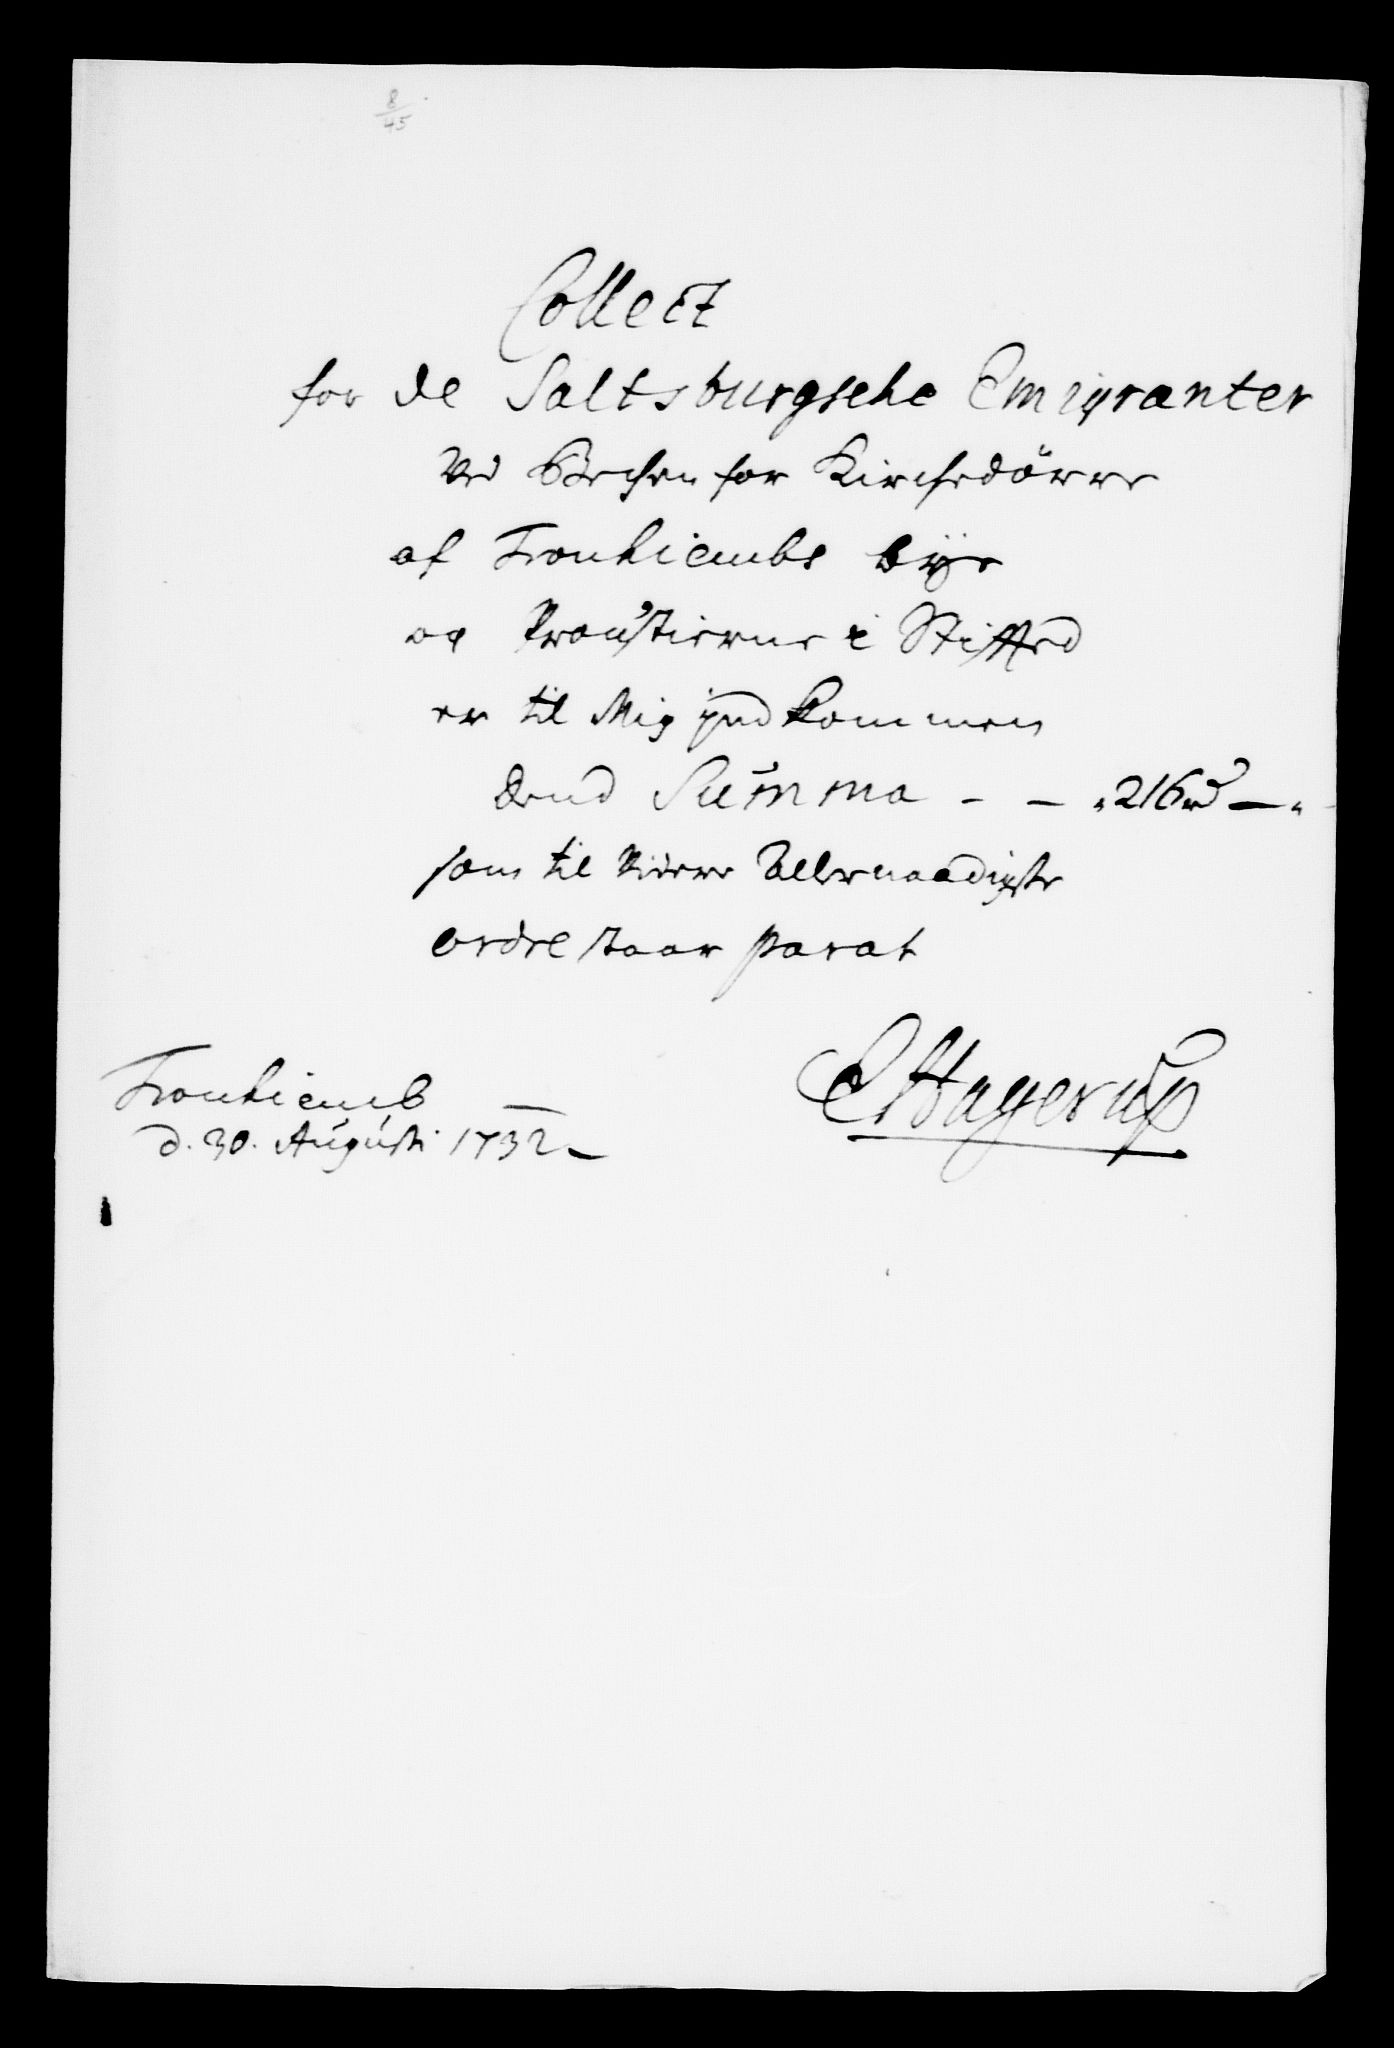 8/45
Collect
for de Saltsburgsche Emigranter
ved Becken for Kirchedörre
af Tronhiembs bÿe
og Proustierne i Stiffted
er til Mig ind kommen
dend Summa - - 216 rd -
som til Videre Allernaadigste
ordre staar parat
Tronhiemb
d. 30. Augusti 1732
E Hagerup